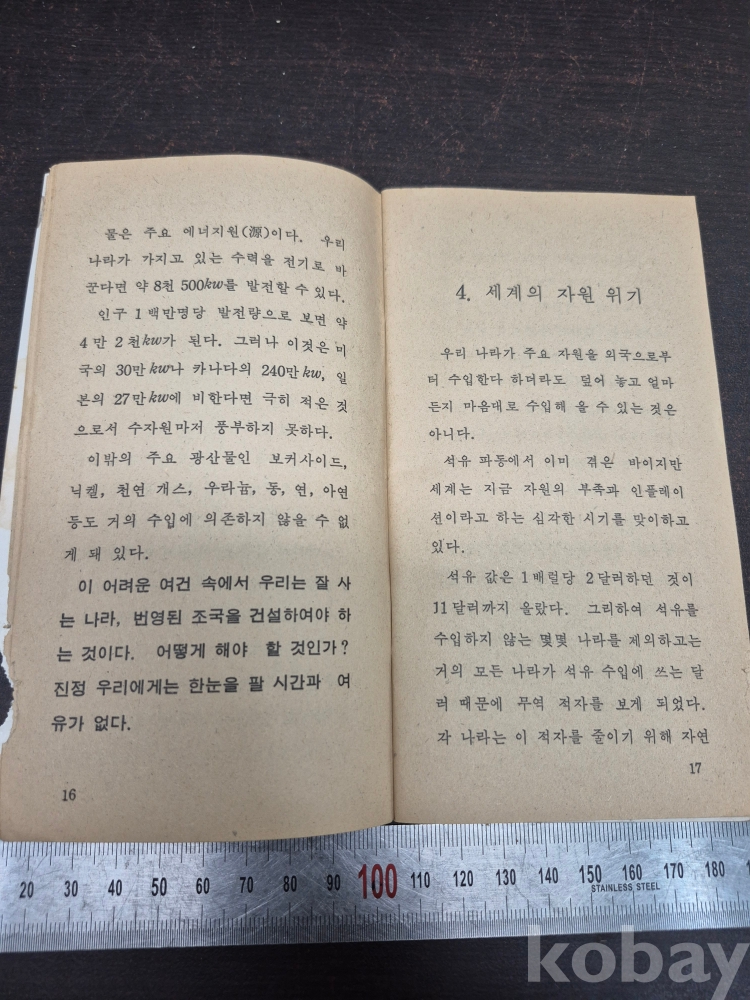 물은 주요 에너지원(源)이다. 우리
나라가 가지고 있는 수력을 전기로 바
꾼다면 약 8천 500kw를 발전할 수 있다.
인구 1백만명당 발전량으로 보면 약
4만 2천kw가 된다. 그러나 이것은 미
국의 30만kw나 카나다의 240만kw, 일
본의 27만kw에 비한다면 극히 적은 것
으로서 수자원마저 풍부하지 못하다.
이밖의 주요 광산물인 보커사이드,
닉켈, 천연 개스, 우라늄, 동, 연, 아연
등도 거의 수입에 의존하지 않을 수 없
게 돼 있다.
이 어려운 여건 속에서 우리는 잘 사
는 나라, 번영된 조국을 건설하여야 하
는 것이다. 어떻게 해야 할 것인가?
진정 우리에게는 한눈을 팔 시간과 여
유가 없다.
16
4. 세계의 자원 위기
우리 나라가 주요 자원을 외국으로부
터 수입한다 하더라도 덮어 놓고 얼마
든지 마음대로 수입해 올 수 있는 것은
아니다.
석유 파동에서 이미 겪은 바이지만
세계는 지금 자원의 부족과 인플레이
션이라고 하는 심각한 시기를 맞이하고
있다.
석유 값은 1배럴당 2달러하던 것이
11달러까지 올랐다. 그리하여 석유를
수입하지 않는 몇몇 나라를 제외하고는
거의 모든 나라가 석유 수입에 쓰는 달
러 때문에 무역 적자를 보게 되었다.
각 나라는 이 적자를 줄이기 위해 자연
17
20 30 40 50 60 70 80 90 100 110 120 130 140 150 160 170 180
STAINLESS STEEL
kobay